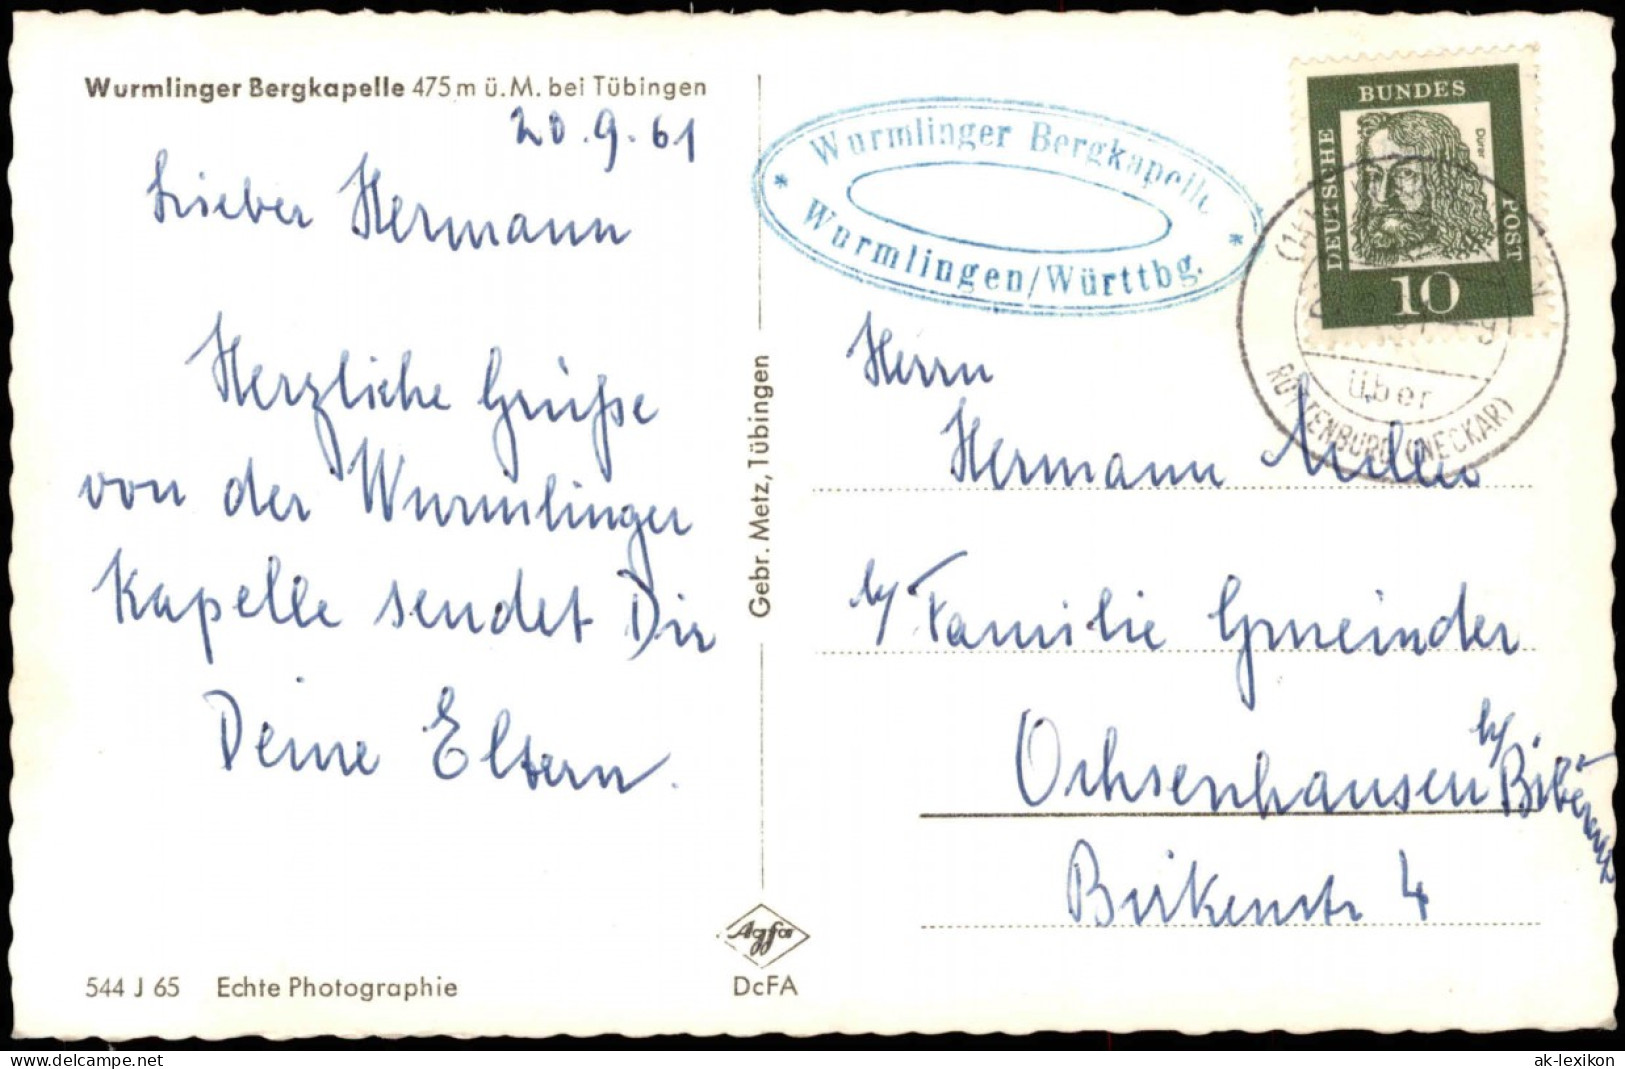 Wurmlinger Bergkapelle 475 m ü. M. bei Tübingen
20.9.61
Lieber Hermann
Herzliche Grüße
von der Wurmlinger
Kapelle sendet Dir
Deine Eltern.
544 J 65 Echte Photographie
Gebr. Metz, Tübingen
Agfa
DcFA
* Wurmlinger Bergkapelle *
Wurmlingen/Württbg.
DEUTSCHE
BUNDES
POST
Dürer
10
über
ROTTENBURG (NECKAR)
Herrn
Hermann
b/ Familie Gmeinder
Ochsenhausen b/ Biberach
Birkenstr 4
ak-lexikon